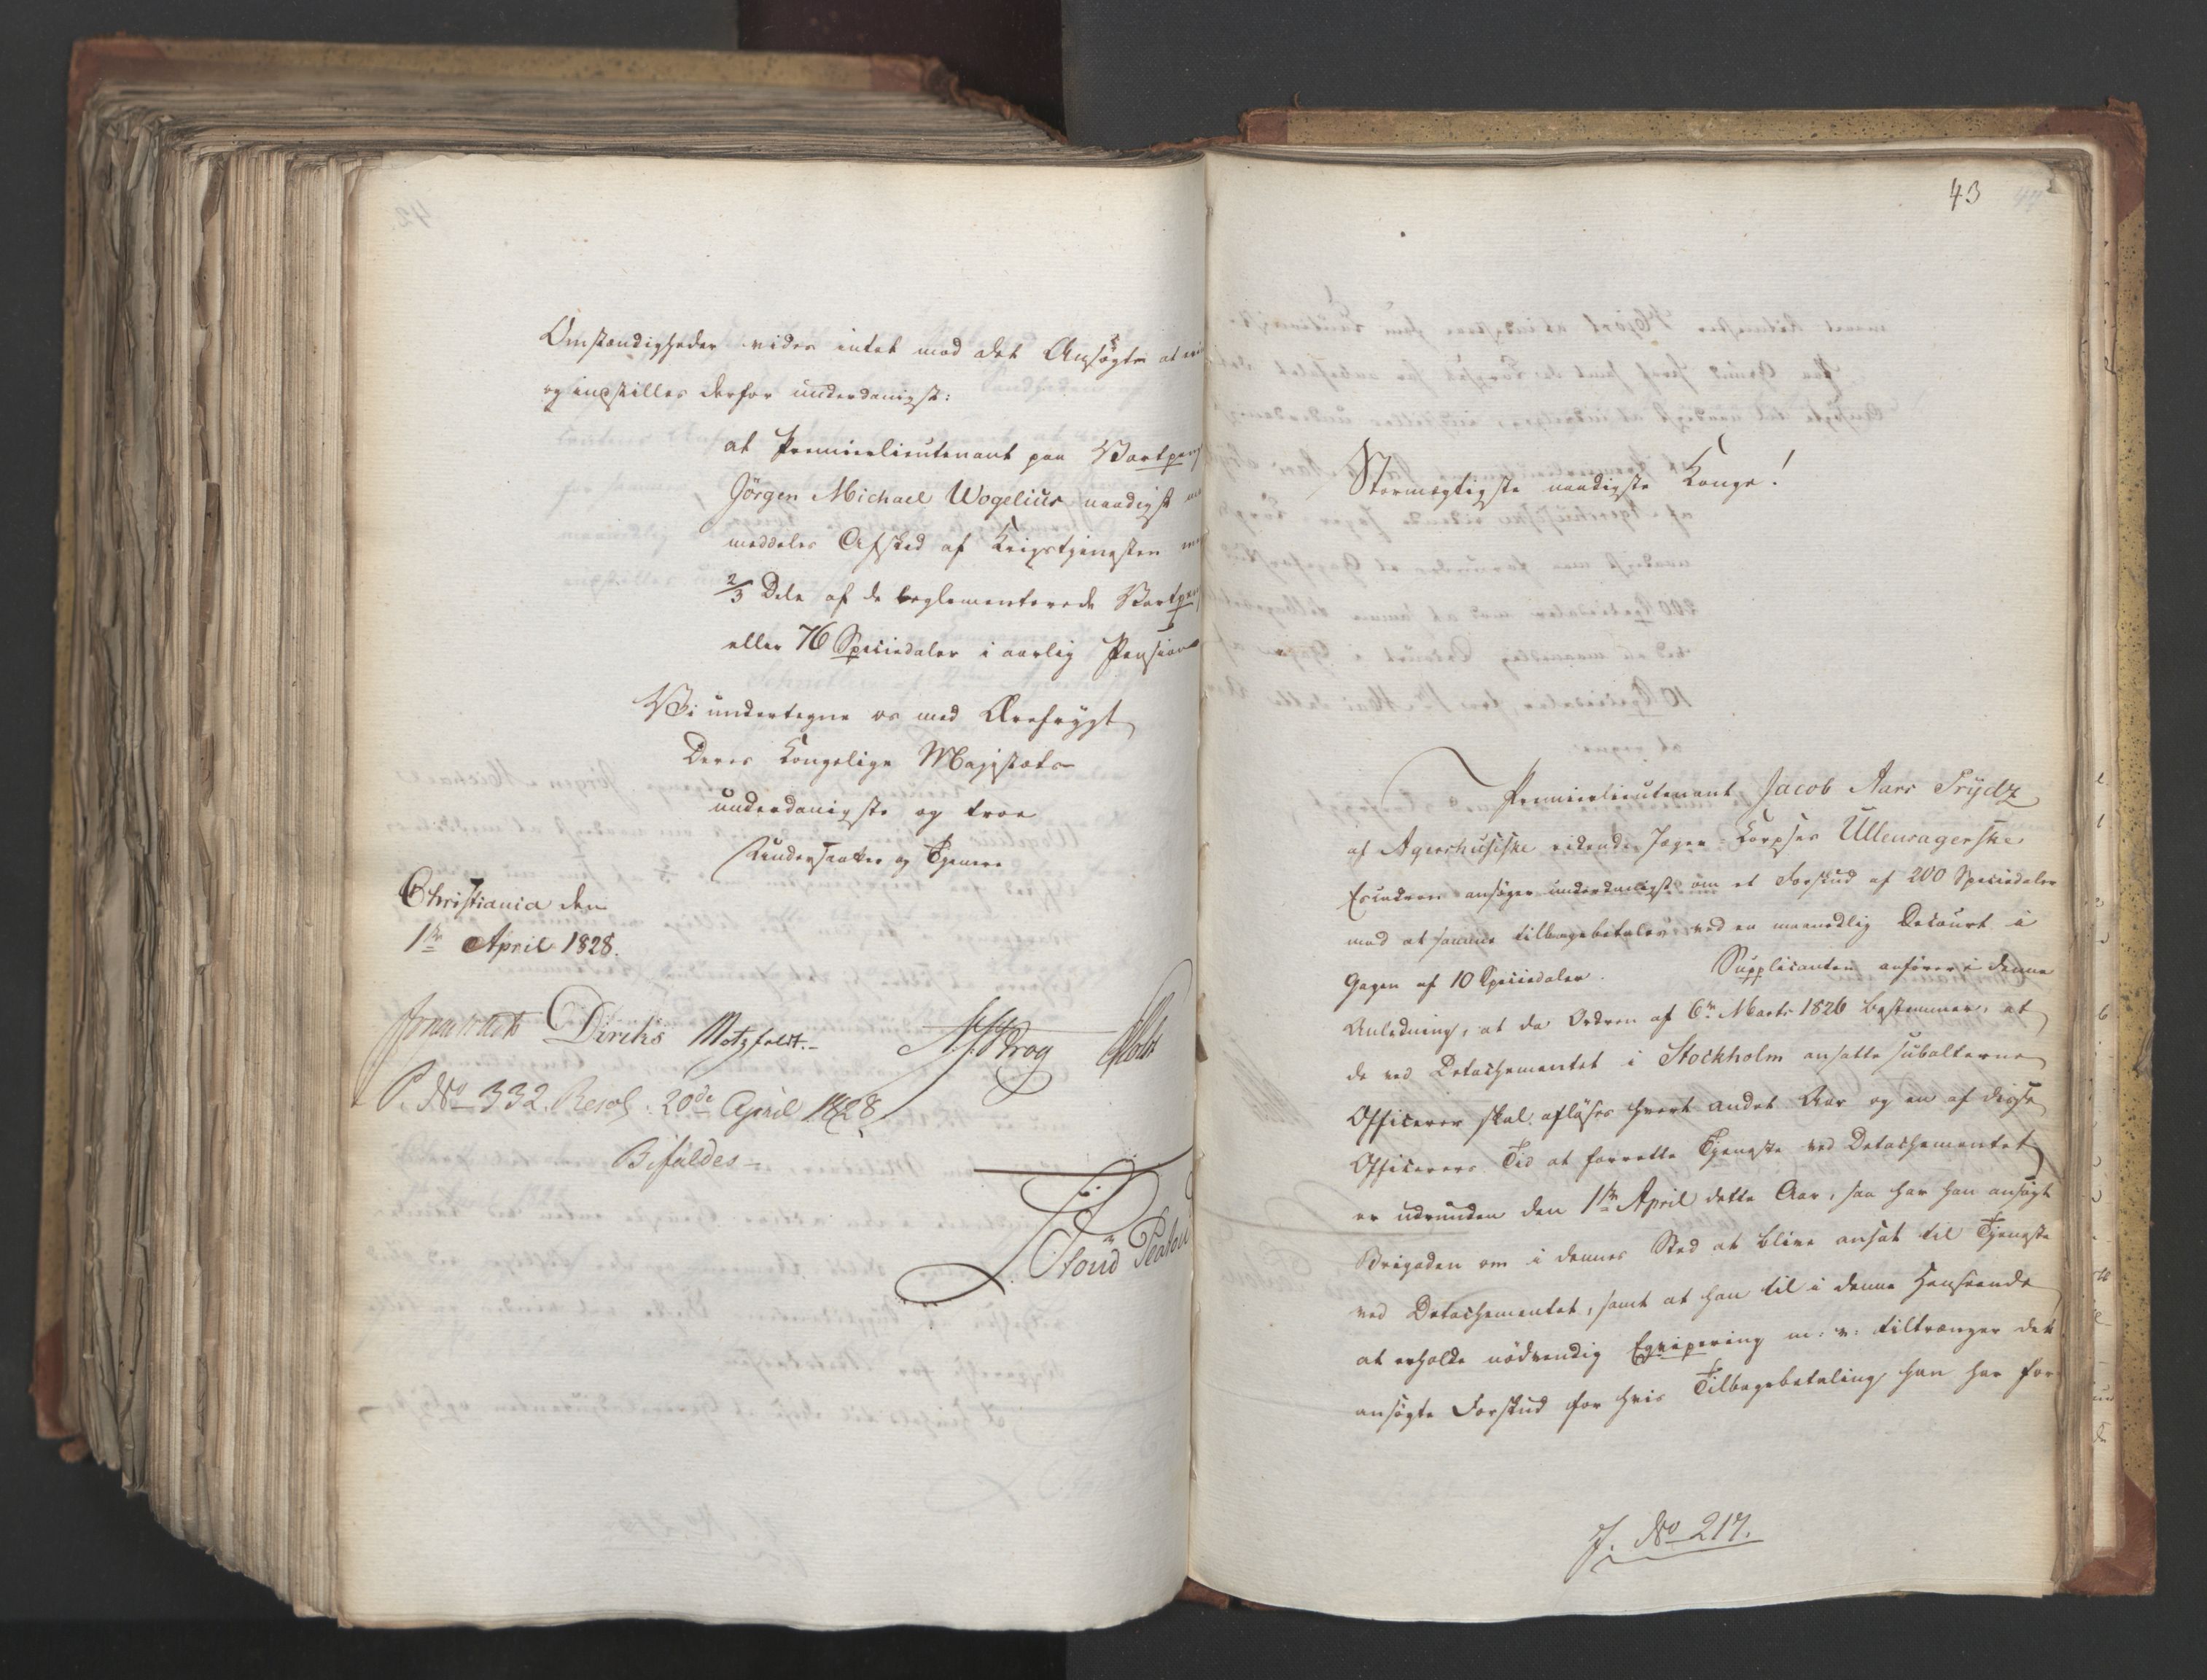 Omstændigheder vides intet mod det Ansøgte at
og indstilles derfor underdanigst:
at Premierlieutenant paa Vartpeng
Jörgen Michael Wogelius naadigst
meddeles Afsked af Krigstjenesten
2/3 Dele af de reglementerede Vartpen
eller 76 Speciedaler i aarlig Pension
Vi undertegne os med Ærefrygt
Deres Kongelige Majestæts
underdanigste og troe
Undersaatter og Tjenere
Christiania den
1ste April 1828.
Diriks Motzfeldt. Krog Holst
P. No 332. Resol. 20de April 1828
Bifaldes
43
Stormægtigste naadigste Konge!
Premierlieutenant Jacob Aars Trydz
af Agershusiske ridende Jæger-Korpses Ullensagerske
Escadron ansøger underdanigst om et Forskud af 200 Speciedaler
mod at samme tilbagebetales ved en maanedlig Decourt i
Gagen af 10 Speciedaler. Supplicanten anfører i denne
Anledning, at da Ordren af 6te Marts 1826 bestemmer, at
de ved Detachementet i Stockholm ansatte subalterne
Officerer skal afløses hvert andet Aar og en af disse
Officerers Tid at forrette Tjeneste ved Detachementet
er udrunden den 1ste April dette Aar, saa har han ansøgt
Brigaden om i dennes Sted at blive ansat til Tjeneste
ved Detachementet, samt at han til i denne Henseende
at erholde nödvendig Eqvipering m: v: tiltrænger det
ansøgte Forskud for hvis Tilbagebetaling han har for
J. No 217.